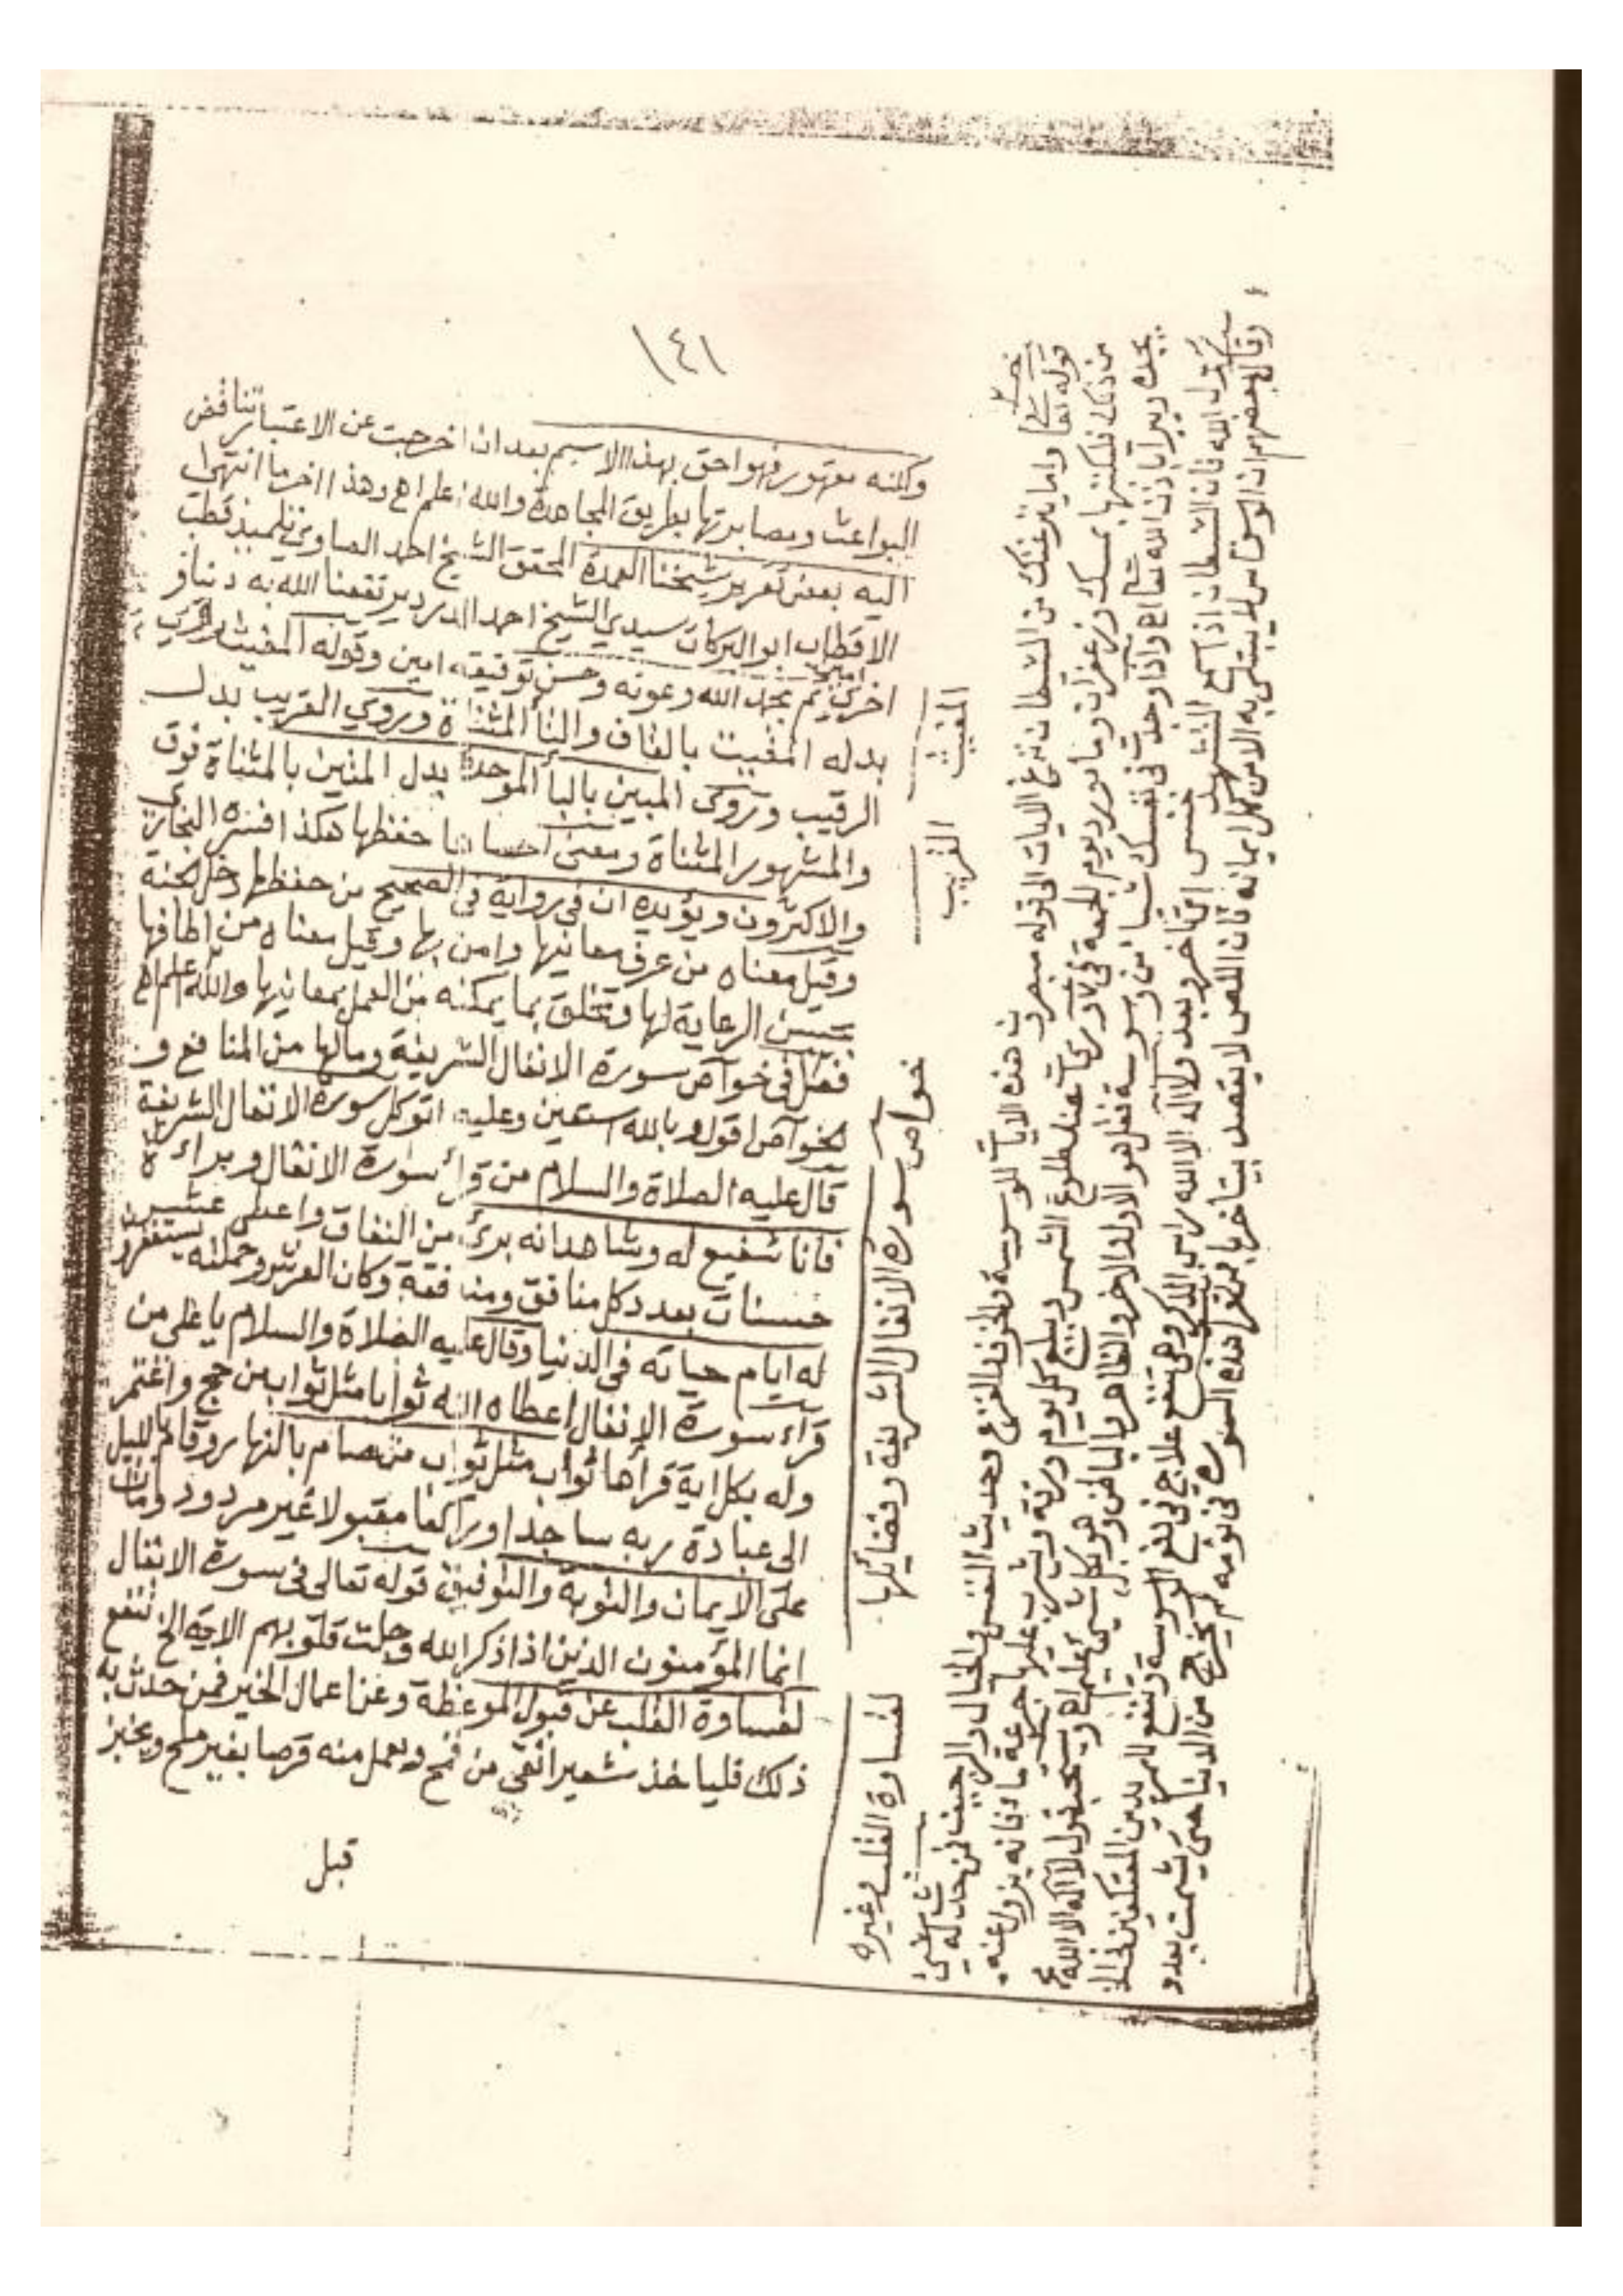 ١٤١
ولكنه مقهور فهو احق بهذا الاسم بعد ان اخرجت عن الاعتبار تناقض
البواعث ومصابرتها بطريق المجاهدة والله اعلم اهـ وهذا اخر ما انتهى
اليه بعض تقرير شيخنا العمدة المحقق الشيخ احمد الصاوي تلميذ قطب
الاقطاب ابو البركات سيدي الشيخ احمد الدردير نفعنا الله به دنيا و
اخرى امين تم بحمد الله وعونه وحسن توفيقه امين وقوله المغيث وروي
بدله المقيت بالقاف والتأ المثناة وروي القريب بدل
الرقيب وتروى المبين بالبأ الموحدة بدل المتين بالمثناة فوق
والمشهور المثناة ومعنى احصاها حفظها هكذا فسره البخاري
والاكثرون ويؤيده ان في رواية في الصحيح من حفظها دخل الجنة
وقيل معناه من عرف معانيها وامن بها وقيل معناه من اطاقها
بحسن الرعاية لها وتخلق بما يمكنه من العمل بمعانيها والله اعلم اهـ
فصل في خواص سورة الانفال الشريفة ومالها من المنافع و
الخواص اقول وبالله استعين وعليه اتوكل سورة الانفال الشريفة
قال عليه الصلاة والسلام من قرأ سورة الانفال وبراءة
فانا شفيع له وشاهد انه برئ من النفاق واعطى عشر
حسنات بعدد كل منافق ومنافقة وكان العرش وحملته يستغفرون
له ايام حياته في الدنيا وقال عليه الصلاة والسلام يا على من
قرأ سورة الانفال اعطاه الله ثوابا مثل ثواب من حج واعتمر
وله بكل اية قرأها ثواب مثل ثواب من صام بالنهار وقام بالليل
الى عبادة ربه ساجدا وراكعا مقبولا غير مردود ومات
على الايمان والتوبة والتوفيق قوله تعالى في سورة الانفال
انما المؤمنون الذين اذا ذكر الله وجلت قلوبهم الاية الخ تنفع
لقساوة القلب عن قبول الموعظة وعن اعمال الخير فمن حدث به
ذلك فليأخذ شعيرا انقى من قمح ويعمل منه قرصا بغير ملح ويخبز
قبل
المغيث
القريب
خواص سورة الانفال الشريفة وفضائلها
لقساوة القلب وغيره
قوله تعا واما ينزغنك من الشيطان نزغ الايات الى قوله مبصرون هذه الايات للوسوسة والخوف والفزع وحديث النفس والخيال والرجيف فمن حدث له شئ
من ذلك فليكتبها بمسك وزعفران وماورد يوم الجمعة في ورق عند طلوع الشمس ويبلع كل يوم ورقة ويشرب عليها جرعة ماء فانه يزول عنه
واذا وجدت في نفسك شيأ من وسوسة فقل هو الاول والاخر والظاهر والباطن وهو بكل شئ عليم اهـ ويستحب قول لا اله الا الله
فان الشيطان اذا سمع الذكر خنس اي تأخر وبعد ولا اله الا الله رأس الذكر وهي انفع علاج في دفع الوسوسة
وقال بعضهم ان الوسواس لا يبتلى به الا من كمل ايمانه فان اللص لا يقصد بيتا خربا
هذه السورة في نومه لم يخرج من الدنيا حتى